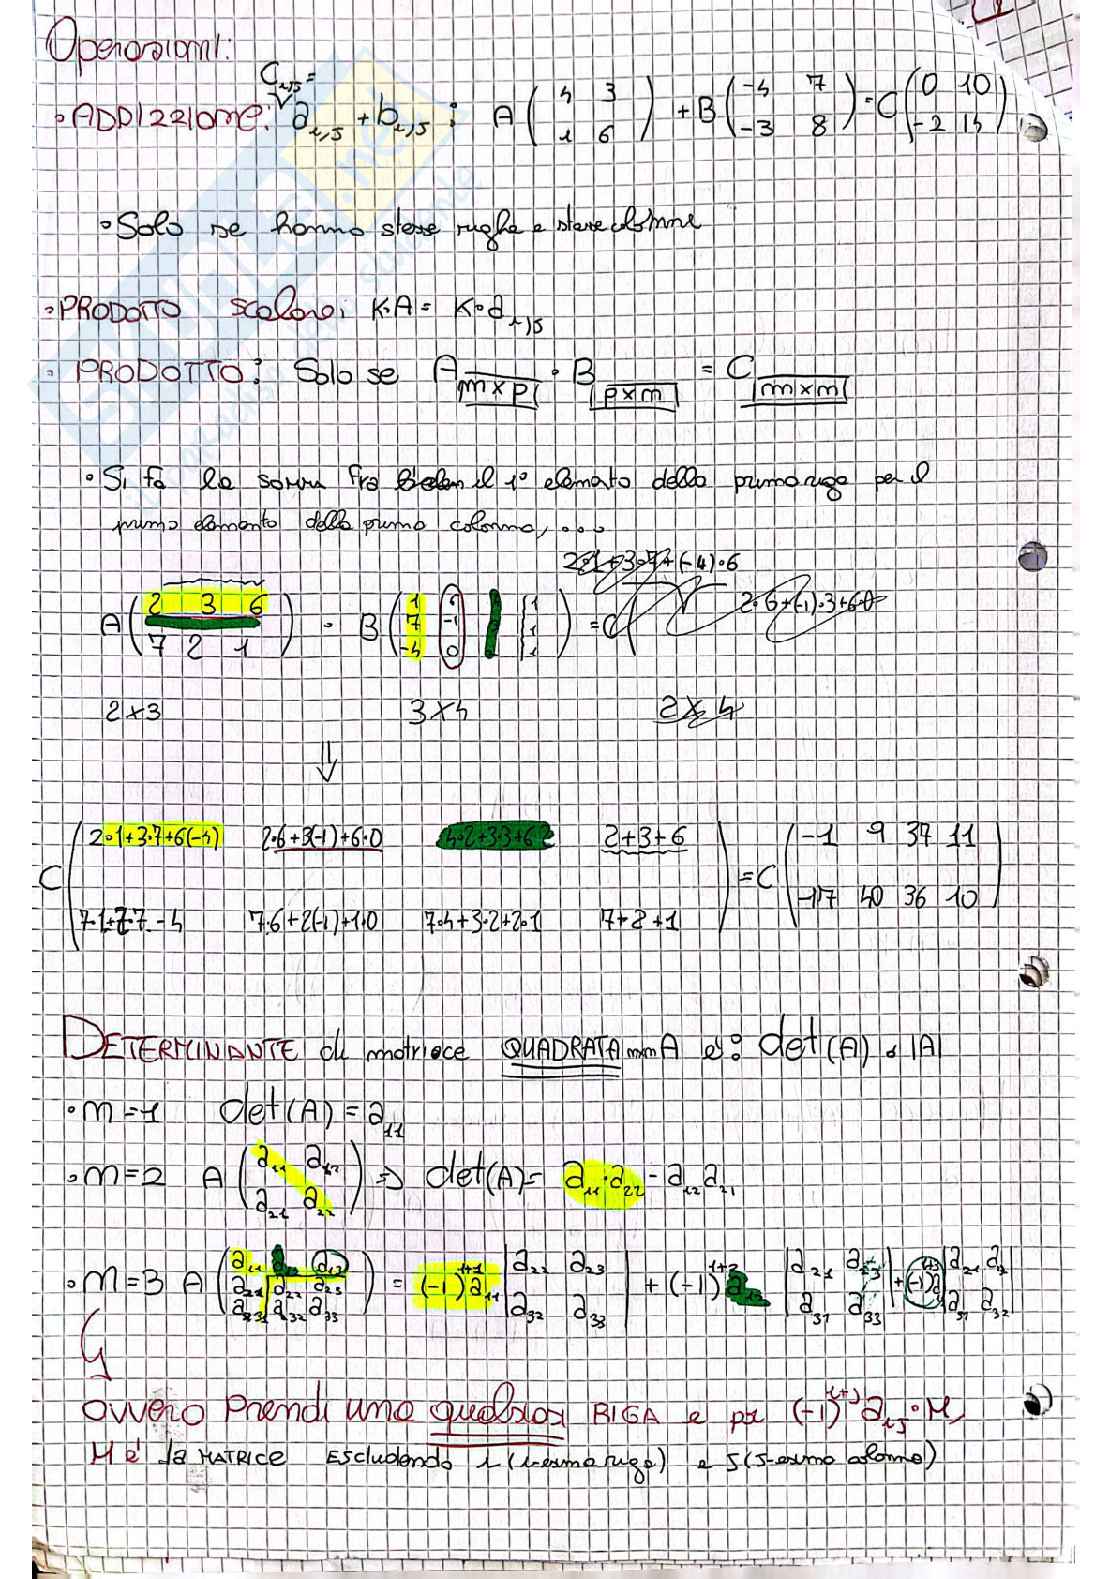 Operazioni:
• ADDIZZIONE: C i,j = a i,j + b i,j ; A (4 3 / 1 6) + B (-4 7 / -3 8) = C (0 10 / -2 14)
• Solo se hanno stesse righe e stesse colonne
• PRODOTTO scalare: K·A = K·a i,j
• PRODOTTO: Solo se A m×p · B p×m = C m×m
• Si fa la somma fra il 1° elemento della prima riga per il
primo elemento della prima colonna, ...
2·1+3·7+(-4)·6
2·6+(-1)·3+6·0
A (2 3 6 / 7 2 1) · B (1 6 1 / 7 -1 1 / -4 0 1) = C (
2×3 3×4 2×4
⇓
C (2·1+3·7+6(-4) 2·6+3(-1)+6·0 4·2+3·3+6·2 2+3+6
7·1+2·7-4 7·6+2(-1)+1·0 7·4+3·2+2·1 7+2+1) = C (-1 9 37 11
-17 40 36 10)
DETERMINANTE di matriece QUADRATA mm A è: det(A) o |A|
• m=1 det(A) = a11
• m=2 A (a11 a12 / a21 a22) ⇒ det(A) = a11·a22 - a12 a21
• m=3 A (a11 a12 a13 / a21 a22 a23 / a31 a32 a33) = (-1)^1+1 a11 |a22 a23 / a32 a33| + (-1)^1+2 a12 |a21 a23 / a31 a33| + (-1) a13 |a21 a22 / a31 a32|
ovvero Prendi una qualsiasi RIGA e poi (-1)^i+j a i,j · M,
M è la MATRICE Escludendo i (i-esima riga) e j (j-esima colonna)